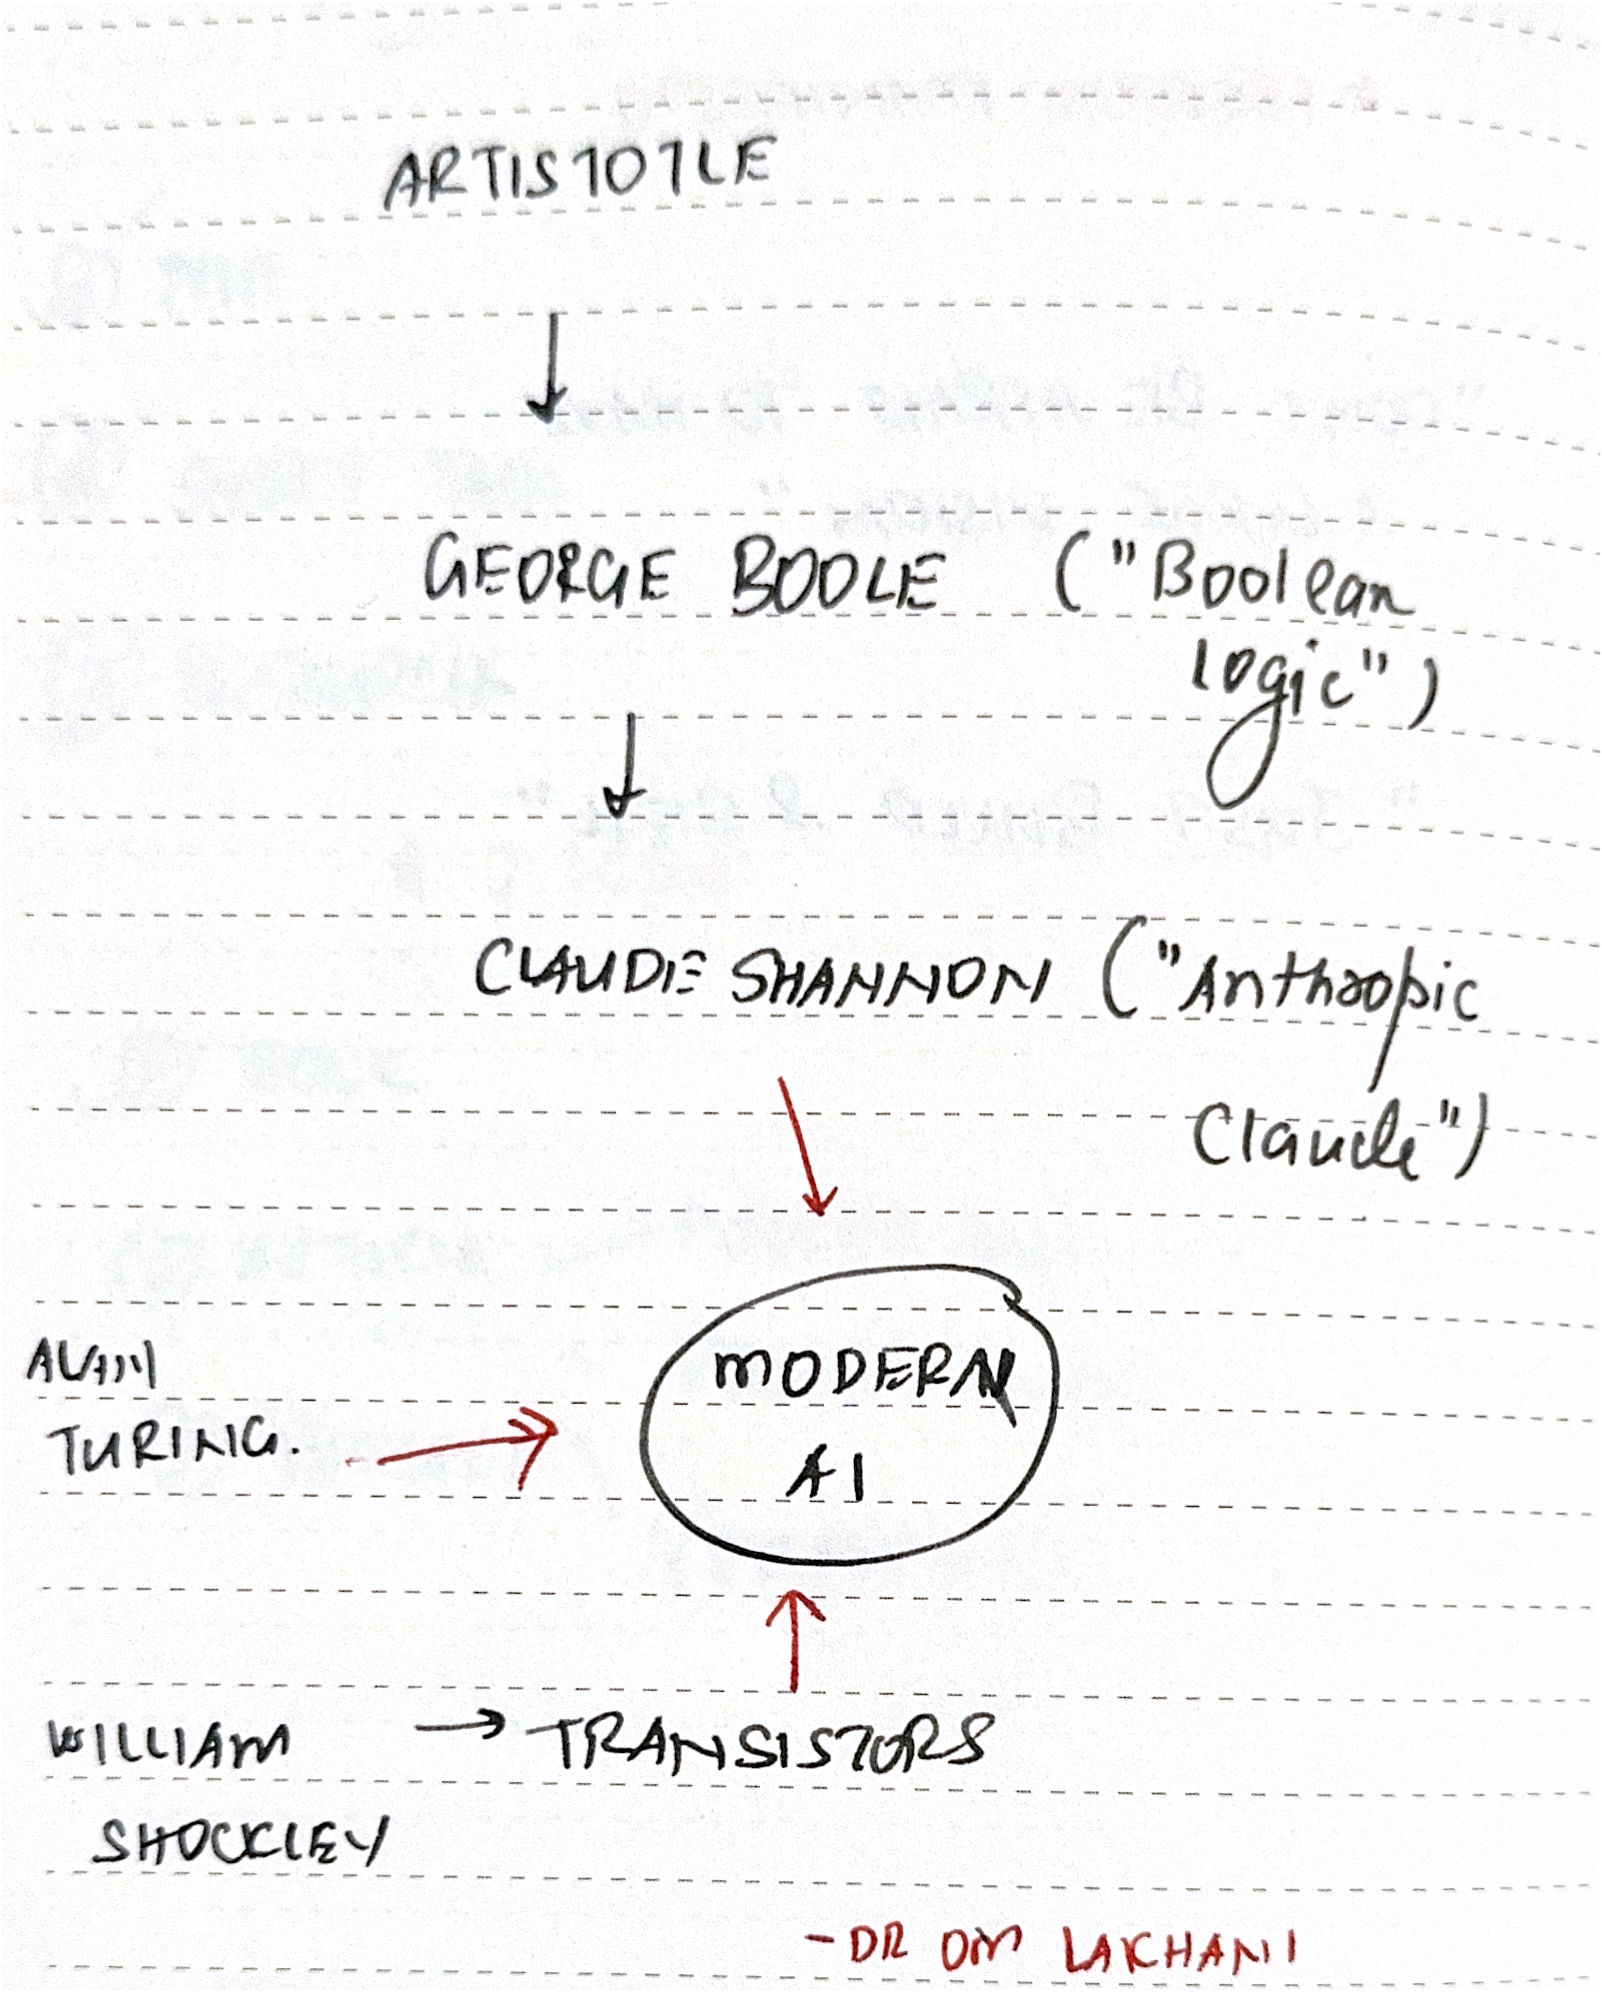 ARTISTOTLE
GEORGE BOOLE ("Boolean
logic")
CLAUDE SHANNON ("Anthropic
Claude")
MODERN
AI
ALAN
TURING.
WILLIAM → TRANSISTORS
SHOCKLEY
- DR OM LAKHANI